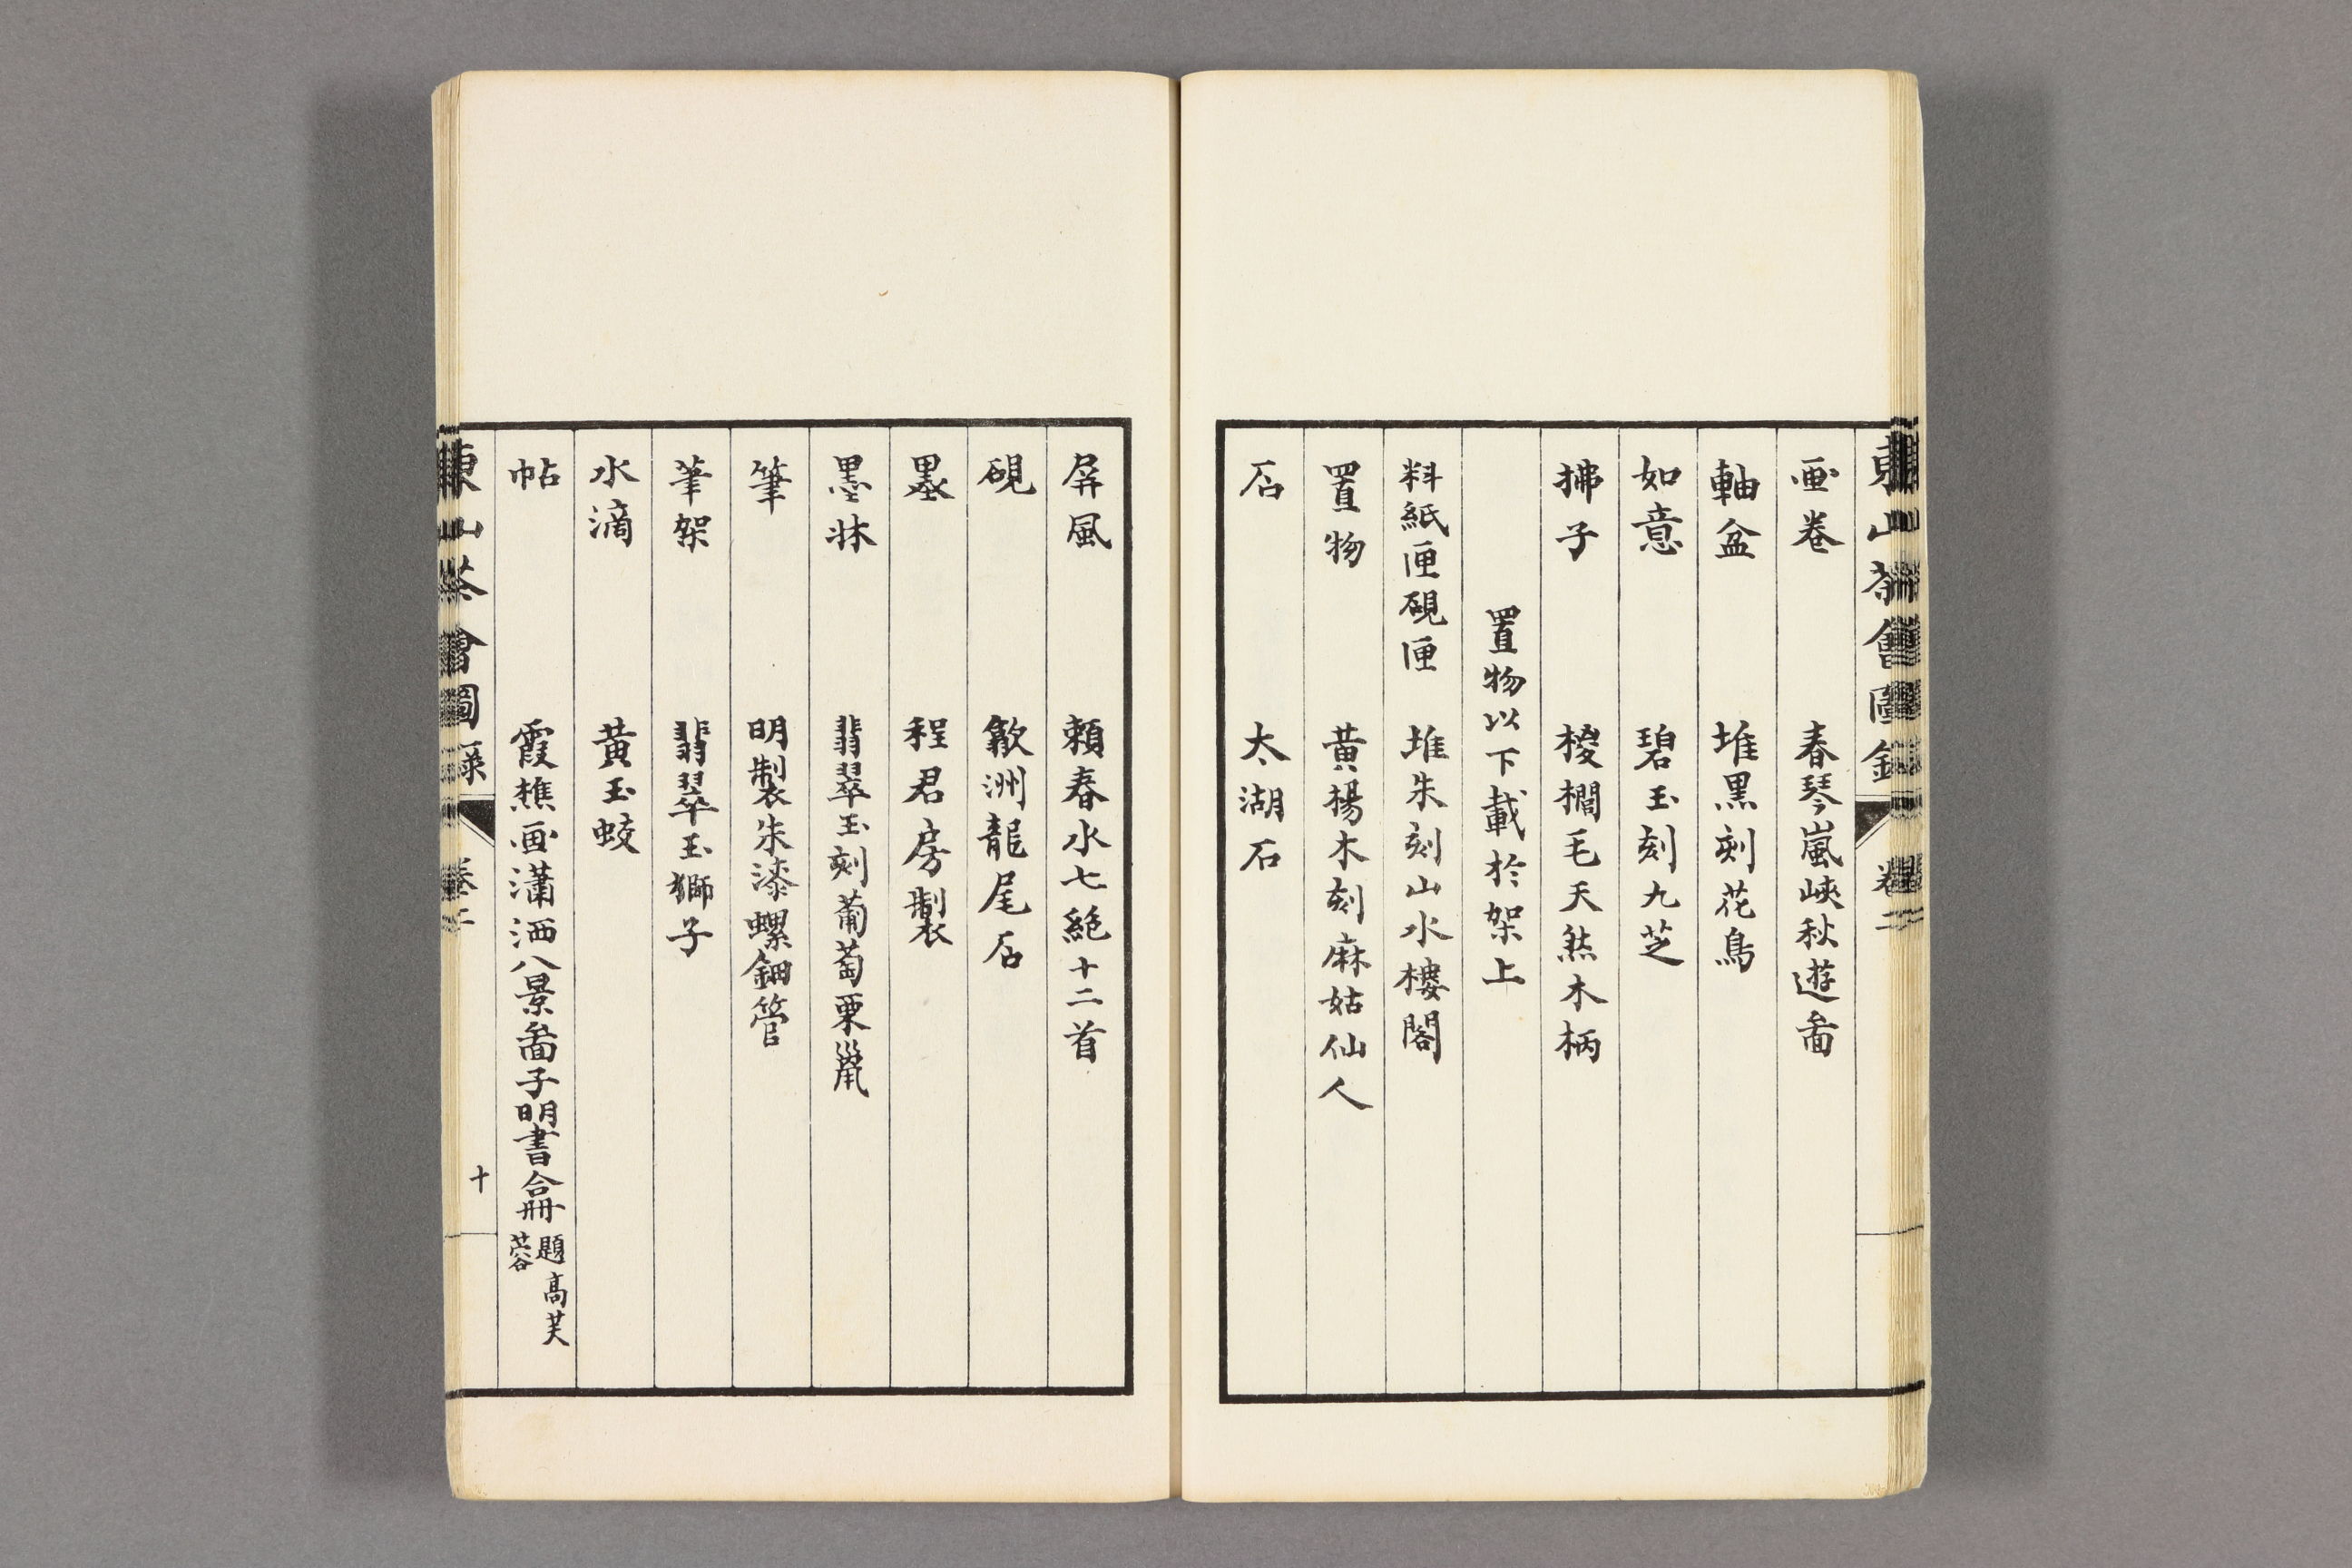 東山茶會圖錄 卷二
画卷 春琴嵐峽秋遊啚
軸盆 堆黒刻花鳥
如意 碧玉刻九芝
拂子 椶櫚毛天然木柄
置物以下載於架上
料紙匣硯匣 堆朱刻山水樓閣
置物 黄楊木刻麻姑仙人
石 太湖石
屏風 頼春水七絶十二首
硯 歙洲龍尾石
墨 程君房製
墨牀 翡翠玉刻葡萄栗鼠
筆 明製朱漆螺鈿管
筆架 翡翠玉獅子
水滴 黄玉蛟
帖 霞樵画瀟洒八景啚子明書合冊 題高芙蓉
東山茶會圖錄 卷二 十